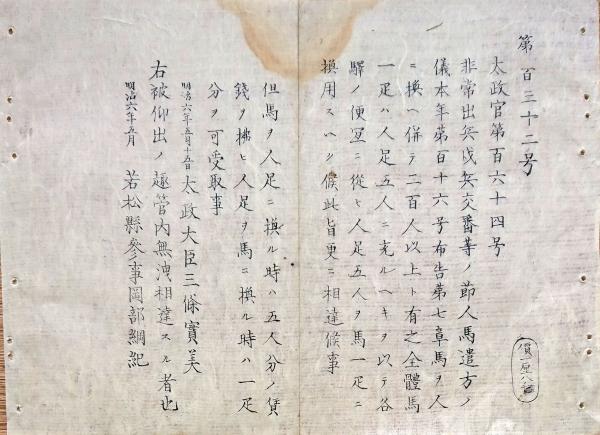 第百三十二号
太政官第百六十四号
非常出兵戍兵交番等ノ節人馬遣方ノ
儀本年第百十六号布告第七章馬ヲ人
ニ換ヘ併テ二百人以上ト有之全體馬
一疋ハ人足五人ニ充ルヘキヲ以テ各
驛ノ便宜ニ從ヒ人足五人ヲ馬一疋ニ
換用スヘク候此旨更ニ相達候事
但馬ヲ人足ニ換ル時ハ五人分ノ賃
錢ヲ拂ヒ人足ヲ馬ニ換ル時ハ一疋
分ヲ可受取事
明治六年五月十五日太政大臣三條實美
右被仰出ノ趣管内無洩相違スル者也
明治六年五月 若松縣參事岡部綱紀
價一厘八毛